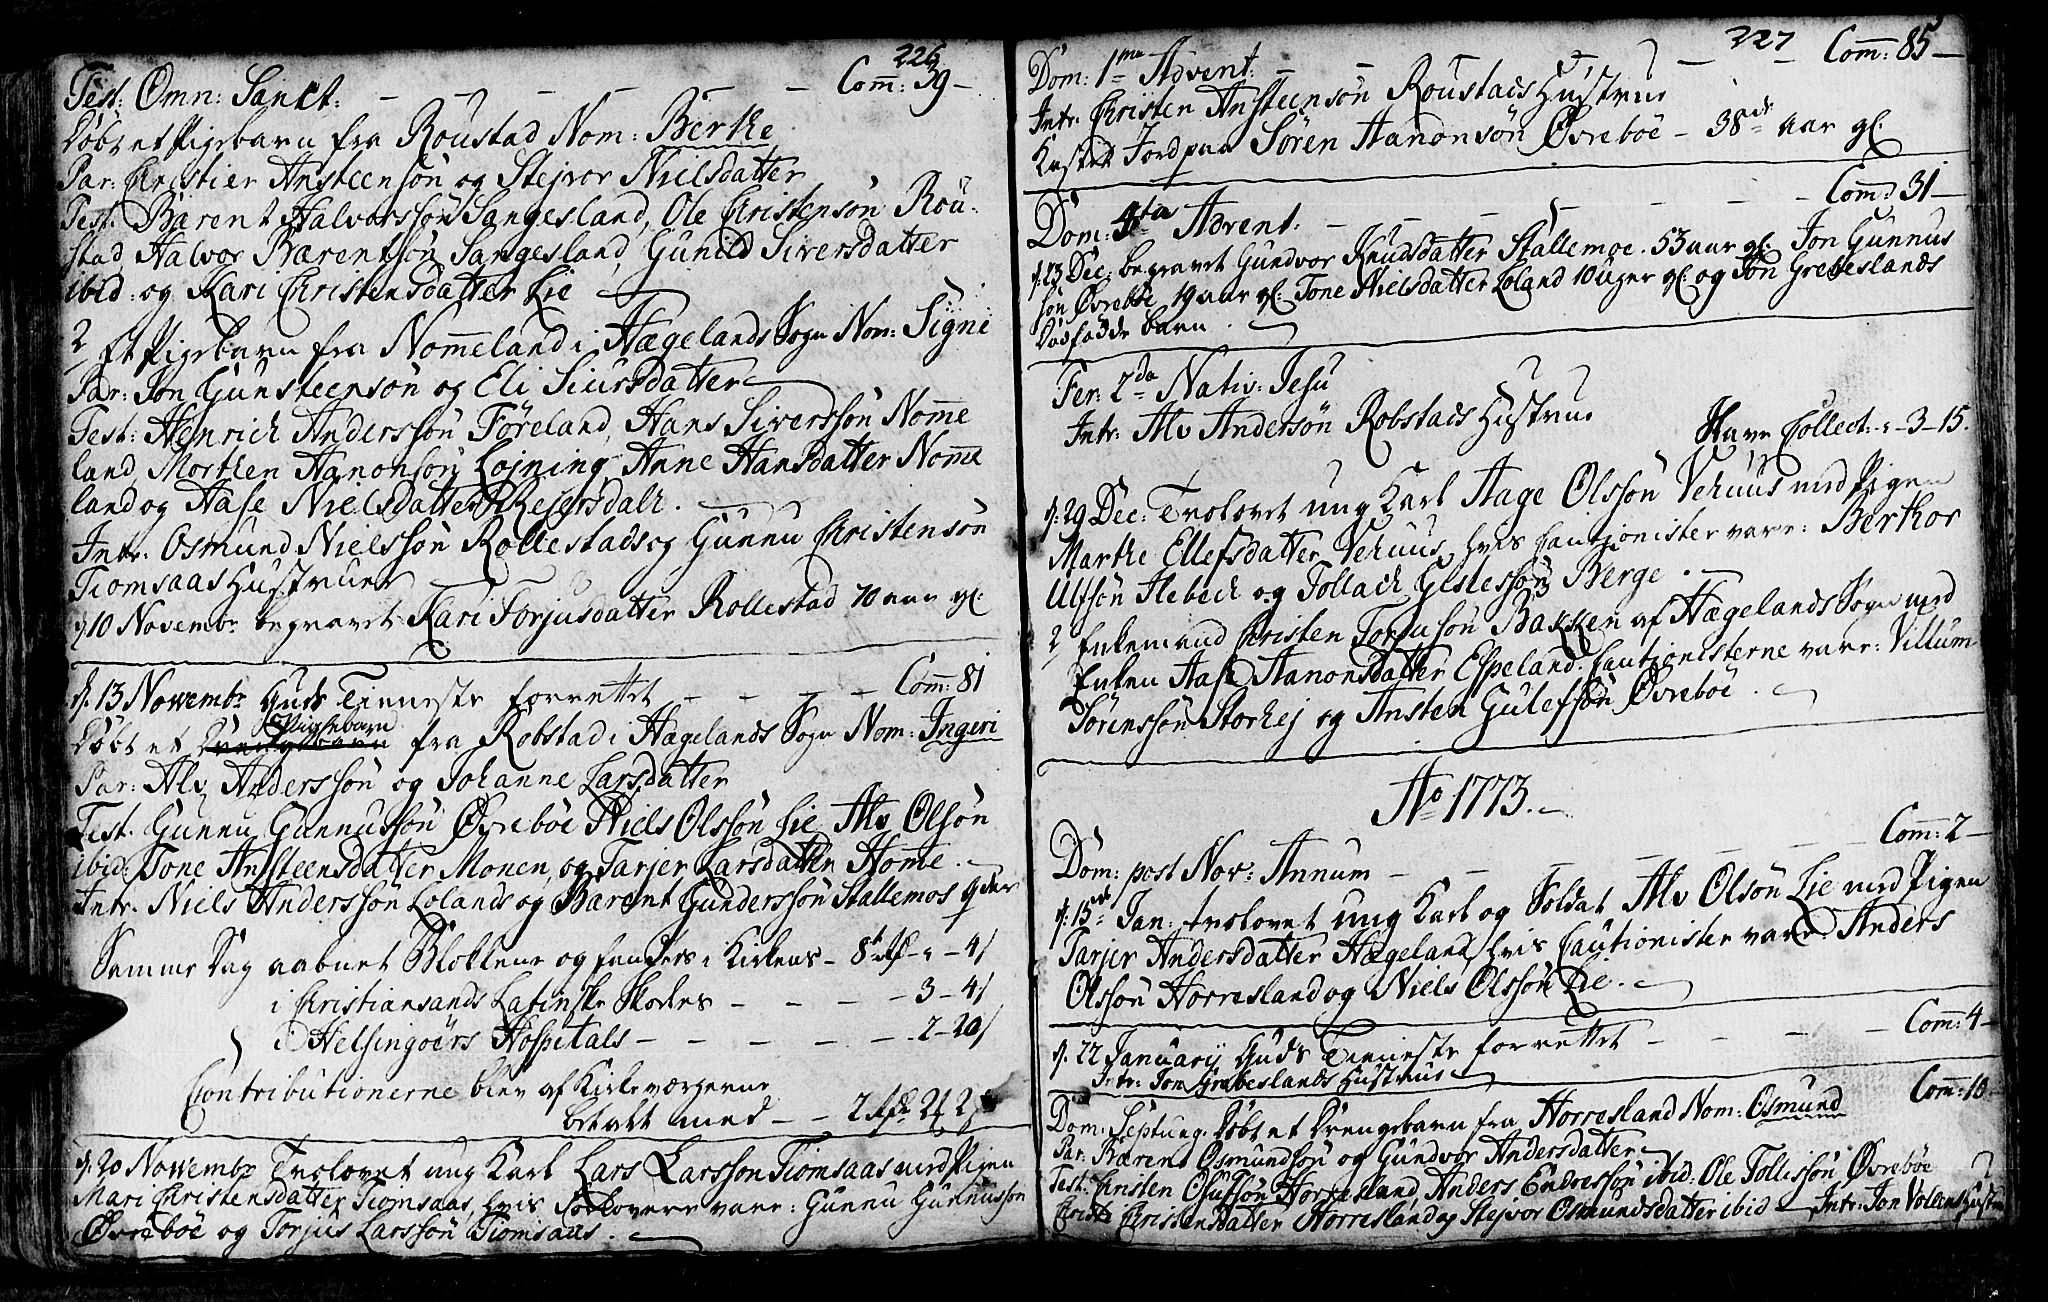 226
Fest: Omn: Sanct: - - - - - - - Com: 39 -
Døbt et Pigebarn fra Roustad Nom: Berthe
Par: Christen Ansteensøn og Stejvor Nielsdatter
Test: Bærent Halvorssøn Sangesland, Ole Christensøn Rou-
stad, Halvor Bærentsøn Sangesland, Gunild Siversdatter
ibid: og Kari Christensdatter Lie
2/ Et Pigebarn fra Nommeland i Hægelands Sogn Nom: Signi
Par: Jon Gunsteensøn og Eli Siursdatter
Test: Henrich Anderssøn Føreland, Hans Siverssøn Nomme
land, Morthen Hanonsøn Løjning, Anne Hansdatter Nomme
land og Aase Nielsdatter Rejersdall.
Intr: Osmund Nielssøn Rollestads og Gunnu Christensøn
Tiomsaas Hustruer
d. 10 Novembr begravet Kari Torjusdatter Rollestad 70 aar gl:
d. 13 Nowembr Guds Tieneste forrettet - - - - Com: 81
Døbt et Pigebarn fra Robstad i Hægelands Sogn Nom: Ingeri
Par: Alv Anderssøn og Johanne Larsdatter
Test. Gunnu Gunnussøn Øvrebøe Niels Olssøn Lie, Alv Olsøn
ibid: Tone Ansteensdatter Monen, og Tarjer Larsdatter Homme.
Intr. Niels Anderssøn Lolands og Bærent Gunderssøn Stallemos qder
Samme Dag aabnet Blokkene og fandtes i Kirkens -
i Christiansands Latinske Skoles - - - - 3 - 4
i Helsingøers Hospitals - - - - - 2 - 20
Contributionerne blev af Kirkeværgerne
betalt med - -
d. 20 Nowembr Trolovet ung Karl Lars Larssøn Tiomsaas med Pigen
Mari Christensdatter Tiomsaas, hvis Forlovere vare: Gunnu Gunnussøn
Øvrebøe og Torjus Larssøn Tiomsaas.
227
Dom: 1ma Advent: - - - - - Com: 85 -
Intr: Christen Ansteensøn Roustads Hustrue
Kastet Jord paa Søren Hanonsøn Øvrebøe - 38 aar gl.
Dom: 4ta Advent: - - - - - - Com: 31 -
d. 23 Dec: begravet Gundvor Knudsdatter Stallemoe. 53 aar gl: Jon Gunnus
søn Øvrebøe, 19 aar gl: Tone Nielsdatter Loland 10 uger gl og Jon Grebeslands
Dødfødde barn.
Fer: 2da Nativ: Jesu
Intr: Alv Andersøn Robstads Hustrue
Collect: - 3 - 15.
d. 29 Dec: Trolovet ung Karl Aage Olssøn Vehuus med Pigen
Marthe Ellefsdatter Vehuus, hvis Cautionister vare: Berthor
Ulfsøn Hebeck og Tollach Gislessøn Berge.
2/ Enkemand Christen Torjusøn Bakken af Hægelands Sogn med
Enken Aase Hanonsdatter Espeland. Cautionisterne vare: Villum
Sørenssøn Storhej og Ansten Gulefsøn Øvrebøe.
Ao 1773.
Dom: post Nov: Annum - - - - - Com: 2 -
d. 15 Jan: trolovet ung Karl og Soldat Alv Olsøn Lie med Pigen
Tarjer Andersdatter Hægeland, hvis Cautionister vare: Anders
Olssøn Horresland og Niels Olssøn Lie.
d. 22 Januarij Guds Tieneste forrettet - - - - Com: 4 -
Intr: Jon Grebeslands Hustrue
Dom: Septuag. Døbt et Drengebarn fra Horresland Nom: Osmund Com: 10 -
Par. Bærent Osmundsøn og Gundvor Andersdatter
Test: Ansten Olufsøn Horresland, Anders Endressøn ibid: Ole Tollissøn Øvrebøe
Christensdatter Horresland og Stejvor Osmundsdatter ibid - Intr: Jon Volans Hustru